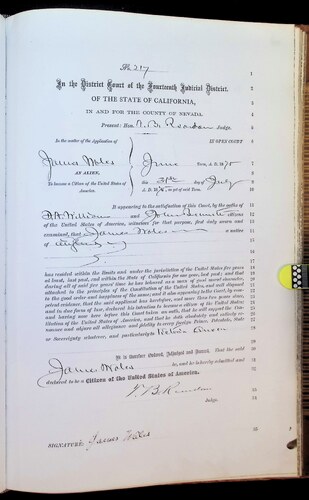 No. 217
In the District Court of the Fourteenth Judicial District,
OF THE STATE OF CALIFORNIA,
IN AND FOR THE COUNTY OF NEVADA.
Present: Hon. T. B. Reardan Judge.
In the matter of the Application of
IN OPEN COURT
James Wales
June Term, A. D. 187
AN ALIEN,
To become a Citizen of the United States of America.
this day of July
A. D. 187
It appearing to the satisfaction of this Court, by the oaths of
Williams and John citizens
of the United States of America, witnesses for that purpose, first duly sworn and
examined, that James Wales a native
of England
has resided within the limits and under the jurisdiction of the United States five years
at least, last past, and within the State of California for one year, last past; and that
during all of said five years' time he has behaved as a man of good moral character,
attached to the principles of the Constitution of the United States, and well disposed
to the good order and happiness of the same; and it also appearing to the Court, by
petent evidence, that the said applicant has heretofore, and more than two years since,
and in due form of law, declared his intention to become a citizen of the United States;
and having now here before this Court taken an oath, that he will support the Con-
stitution of the United States of America, and that he doth absolutely and entirely re-
nounce and abjure all allegiance and fidelity to every foreign Prince, Potentate, State
or Sovereignty whatever, and particularly to Victoria Queen
It is therefore Ordered, Adjudged and Decreed, That the said
James Wales be, and he is hereby admitted and
declared to be a Citizen of the United States of America.
T. B. Reardan
Judge.
SIGNATURE: James Wales